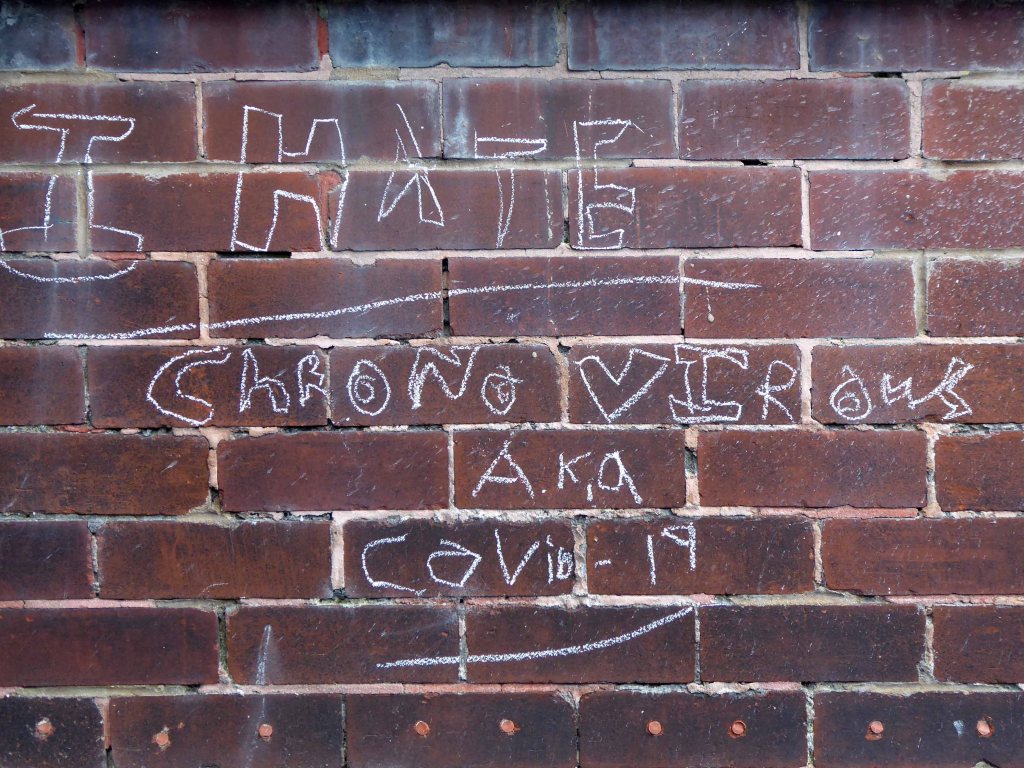 I HATE
CHRONO VIROUS
A.K.A
COVID-19